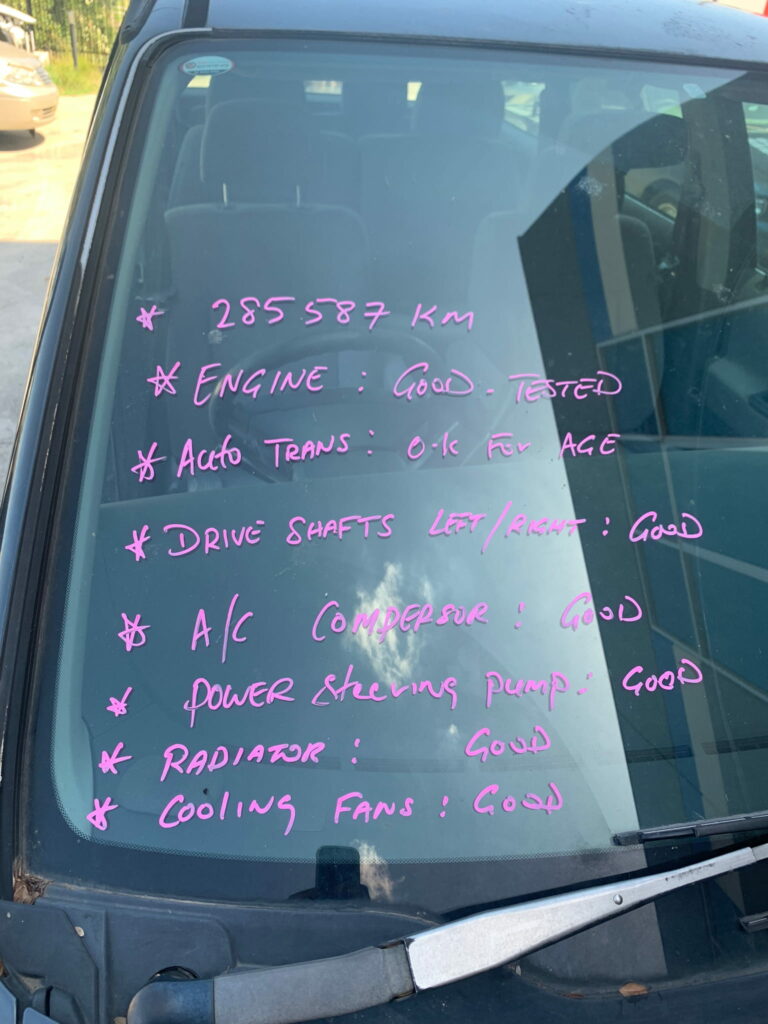 * 285587 KM
* ENGINE : GOOD . TESTED
* Auto TRANS : O.K FOR AGE
* DRIVE SHAFTS LEFT/RIGHT : GOOD
* A/C COMPERSOR : GOOD
* POWER steering pump : GOOD
* RADIATOR : GOOD
* COOLING FANS : GOOD